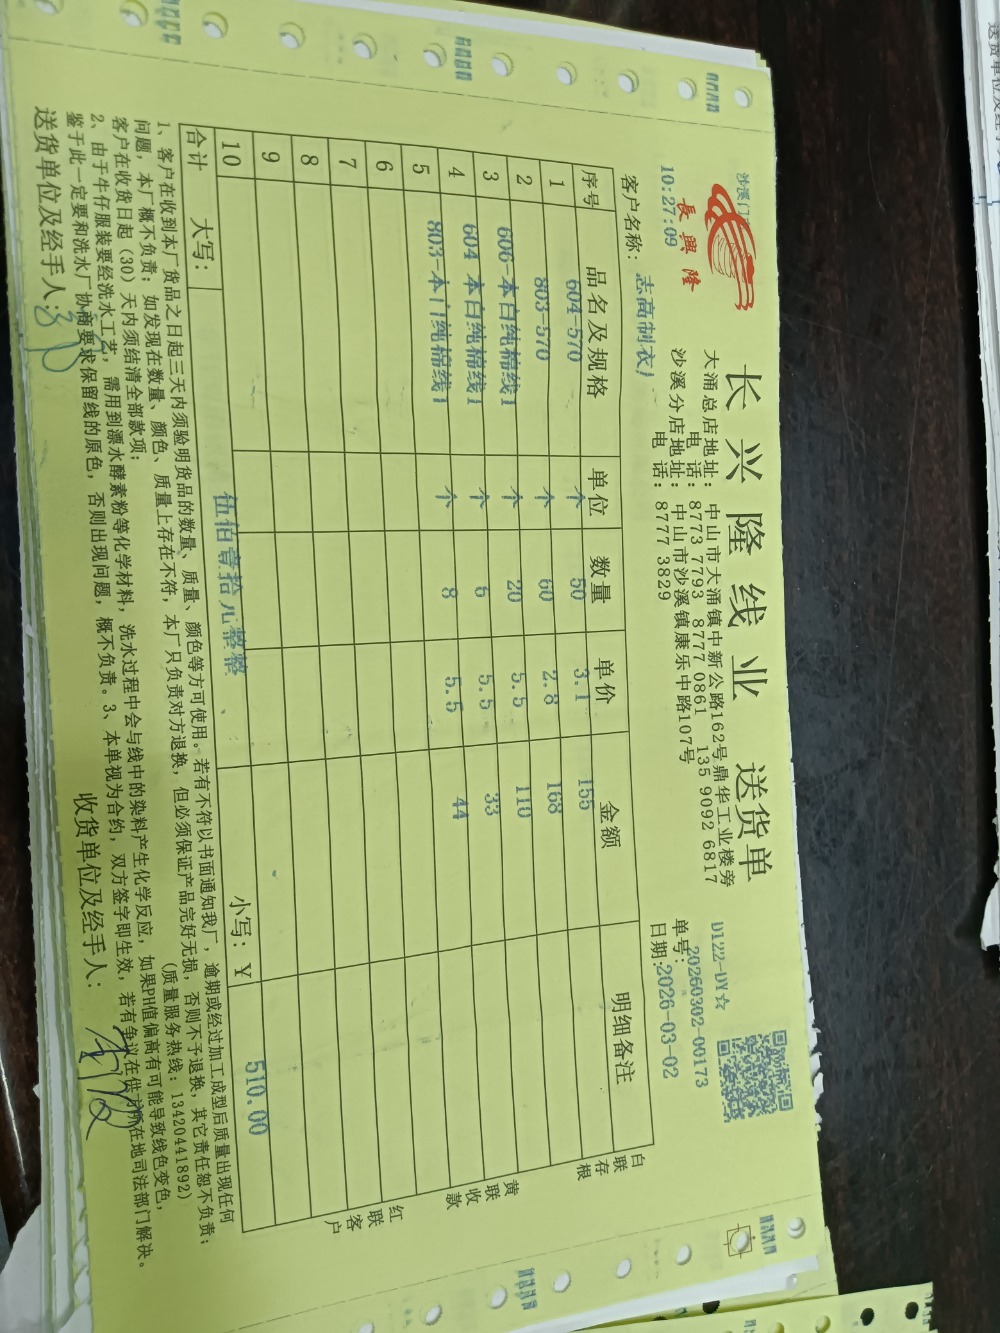 長興隆
沙溪门
10:27:09
长兴隆线业 送货单
大涌总店地址：中山市大涌镇中新公路162号鼎华工业楼旁
电 话：8773 7793 8777 0861 135 9092 6817
沙溪分店地址：中山市沙溪镇康乐中路107号
电 话：8777 3829
D122-DY☆
单号：20260302-00173
日期：2026-03-02
客户名称：志高制衣厂
序号 品名及规格 单位 数量 单价 金额 明细备注
1 604-570 个 50 3.1 155
2 803-570 个 60 2.8 168
3 606-本白纯棉线1 个 20 5.5 110
4 604 本白纯棉线1 个 6 5.5 33
5 803-本白纯棉线1 个 8 5.5 44
6
7
8
9
10
合计 大写：伍佰壹拾元整整 小写：￥ 510.00
白联存根
黄联收款
红联客户
1、客户在收到本厂货品之日起三天内须验明货品的数量、质量、颜色等方可使用。若有不符以书面通知我厂，逾期或经过加工成型后质量出现任何
问题，本厂概不负责；如发现在数量、颜色、质量上存在不符，本厂只负责对方退换，但必须保证产品完好无损，否则不予退换，其它责任恕不负责；
客户在收货日起（30）天内须结清全部款项； （质量服务热线：13420441892）
2、由于牛仔服装要经洗水工艺，需用到漂水酵素粉等化学材料，洗水过程中会与线中的染料产生化学反应，如果PH值偏高有可能导致线色变色，
鉴于此一定要和洗水厂协商要求保留线的原色，否则出现问题，概不负责。3、本单视为合约，双方签字即生效，若有争议在供方所在地司法部门解决。
送货单位及经手人： 收货单位及经手人：